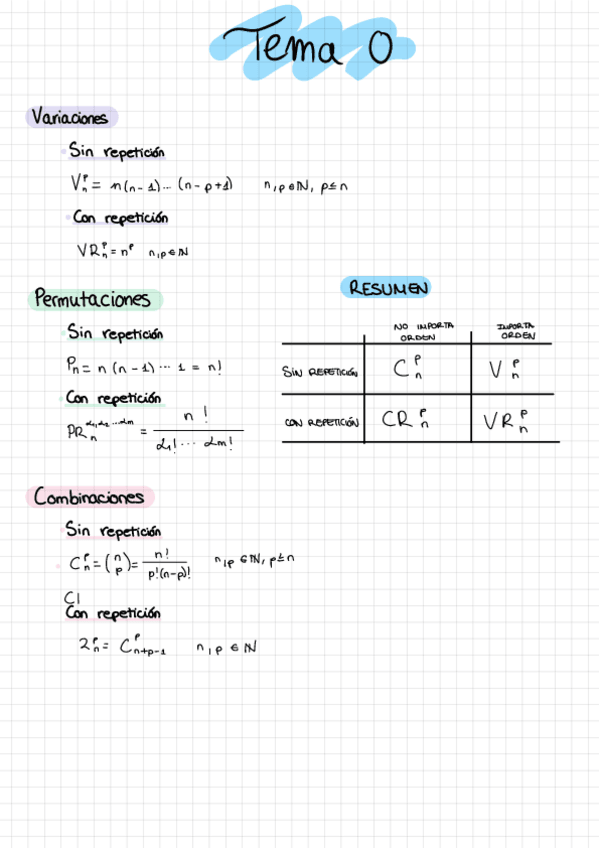 Tema 0
Variaciones
Sin repetición
V_n^p = n(n-1)... (n-p+1) n,p∈ℕ, p≤n
Con repetición
VR_n^p = n^p n,p∈ℕ
Permutaciones
Sin repetición
P_n = n(n-1)...1 = n!
Con repetición
PR_n^{α1,α2...αm} = n! / α1!...αm!
RESUMEN
NO IMPORTA ORDEN IMPORTA ORDEN
SIN REPETICIÓN C_n^p V_n^p
CON REPETICIÓN CR_n^p VR_n^p
Combinaciones
Sin repetición
C_n^p = (n p) = n! / p!(n-p)! n,p∈ℕ, p≤n
CI
Con repetición
2_n^p = C_{n+p-1}^p n,p∈ℕ